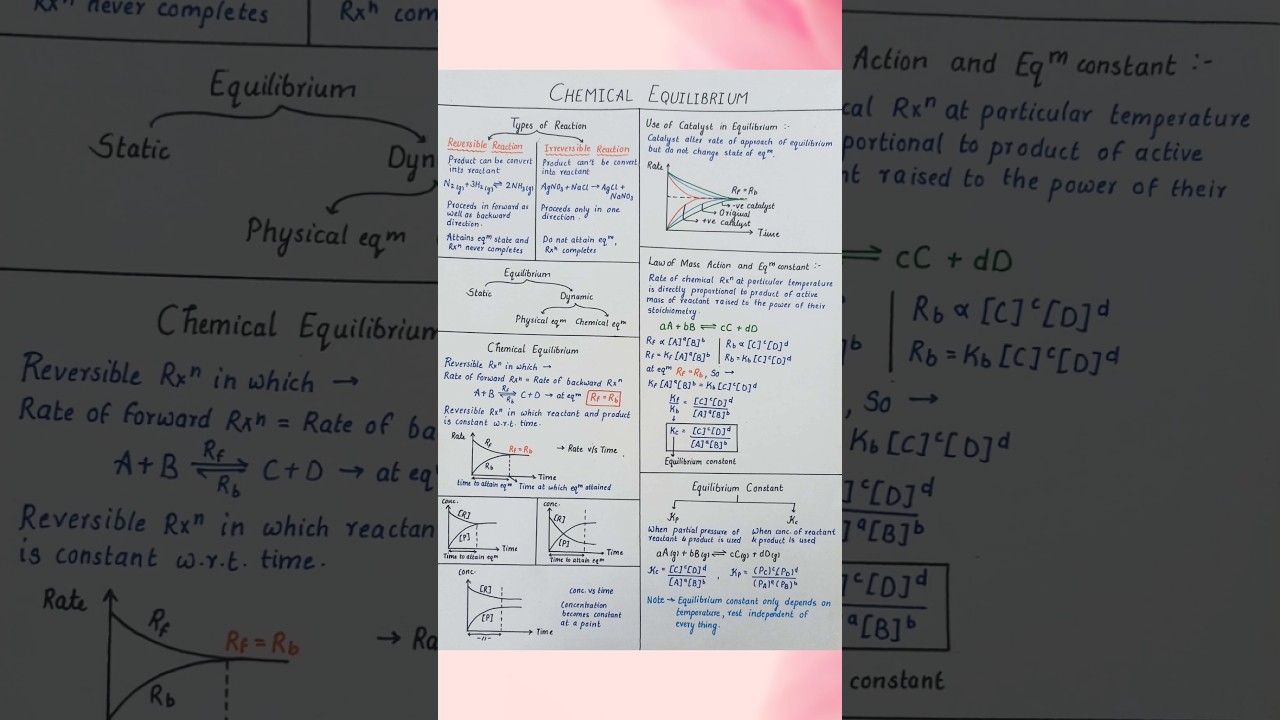 CHEMICAL EQUILIBRIUM
Types of Reaction
Reversible Reaction
Product can be convert
into reactant
N₂(g)+3H₂(g) ⇌ 2NH₃(g)
Proceeds in forward as
well as backward
direction.
Attains eqᵐ state and
Rxⁿ never completes
Irreversible Reaction
Product can't be convert
into reactant
AgNO₃ + NaCl → AgCl +
NaNO₃
Proceeds only in one
direction.
Do not attain eqᵐ,
Rxⁿ completes
Equilibrium
Static
Dynamic
Physical eqᵐ
Chemical eqᵐ
Chemical Equilibrium
Reversible Rxⁿ in which →
Rate of forward Rxⁿ = Rate of backward Rxⁿ
A+B ⇌ C+D → at eqᵐ Rf = Rb
Rf
Rb
Reversible Rxⁿ in which reactant and product
is constant w.r.t. time.
Rate
Rf
Rf = Rb
Rb
→ Rate v/s Time.
Time
time to attain eqᵐ
Time at which eqᵐ attained
conc.
[R]
[P]
Time
Time to attain eqᵐ
conc.
[R]
[P]
Time
Time to attain eqᵐ
conc.
[R]
[P]
Time
-//-
conc. vs time
Concentration
becomes constant
at a point
Use of Catalyst in Equilibrium :-
Catalyst alter rate of approach of equilibrium
but do not change state of eqᵐ.
Rate
Rf = Rb
-ve catalyst
Original
+ve catalyst
Time
Law of Mass Action and Eqᵐ constant :-
Rate of chemical Rxⁿ at particular temperature
is directly proportional to product of active
mass of reactant raised to the power of their
stoichiometry.
aA + bB ⇌ cC + dD
Rf ∝ [A]ᵃ[B]ᵇ | Rb ∝ [C]ᶜ[D]ᵈ
Rf = Kf [A]ᵃ[B]ᵇ | Rb = Kb [C]ᶜ[D]ᵈ
at eqᵐ Rf = Rb, So →
Kf [A]ᵃ[B]ᵇ = Kb [C]ᶜ[D]ᵈ
Kf/Kb = [C]ᶜ[D]ᵈ/[A]ᵃ[B]ᵇ
Kc = [C]ᶜ[D]ᵈ/[A]ᵃ[B]ᵇ
Equilibrium constant
Equilibrium Constant
Kp
When partial pressure of
reactant & product is used
Kc
When conc. of reactant
& product is used
aA(g) + bB(g) ⇌ cC(g) + dD(g)
Kc = [C]ᶜ[D]ᵈ/[A]ᵃ[B]ᵇ , Kp = (Pc)ᶜ(PD)ᵈ/(PA)ᵃ(PB)ᵇ
Note → Equilibrium constant only depends on
temperature, rest independent of
every thing.
Rxⁿ never completes
Rxⁿ com
Equilibrium
Static
Dyn
Physical eqᵐ
Chemical Equilibrium
Reversible Rxⁿ in which →
Rate of forward Rxⁿ = Rate of ba
A+B ⇌ C+D → at eq
Rf
Rb
Reversible Rxⁿ in which reactan
is constant w.r.t. time.
Rate
Rf
Rf = Rb
Rb
→ Ra
Action and Eqᵐ constant :-
cal Rxⁿ at particular temperature
portional to product of active
nt raised to the power of their
cC + dD
Rb ∝ [C]ᶜ[D]ᵈ
Rb = Kb [C]ᶜ[D]ᵈ
, So →
Kb [C]ᶜ[D]ᵈ
[D]ᵈ
[B]ᵇ
[D]ᵈ
ᵃ[B]ᵇ
constant